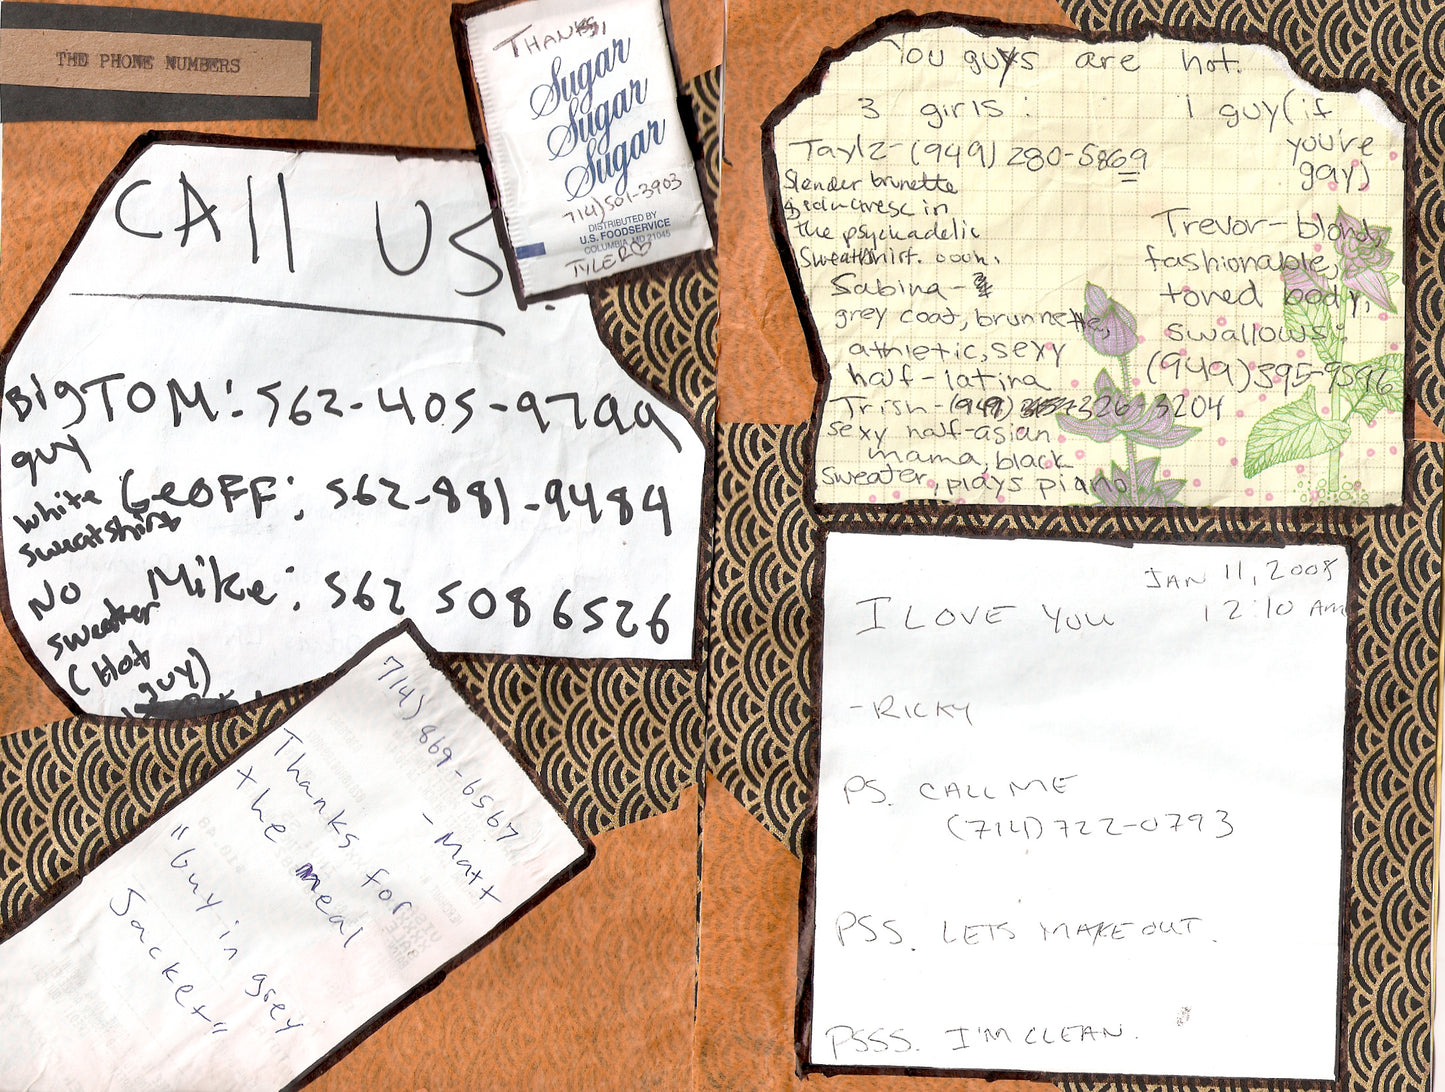 THE PHONE NUMBERS
THANKS,
Sugar
Sugar
Sugar
714)501-3903
DISTRIBUTED BY
U.S. FOODSERVICE
COLUMBIA, MD 21045
TYLER♡
CALL US
Big TOM: 562-405-9799
guy
white GEOFF: 562-881-9484
sweatshirt
No Mike: 562 508 6526
sweater
(Hot
guy)
714) 869-6567
- Matt
Thanks for
the meal
"Guy in grey
Jacket"
You guys are hot.
3 girls:
Taylz-(949) 280-5869
Slender brunette
seductress in
the psychadelic
sweatshirt. oooh.
Sabina-
grey coat, brunnette,
athletic, sexy
half-latina
Trish-(949) 326 3204
sexy half-asian
mama, black
sweater, plays piano
1 guy(if
you're
gay)
Trevor-blond,
fashionable,
toned body,
swallows:
(949)395-9596
JAN 11, 2008
12:10 AM
I LOVE YOU
-RICKY
PS. CALL ME
(714)722-0793
PSS. LETS MAKE OUT.
PSSS. I'M CLEAN.